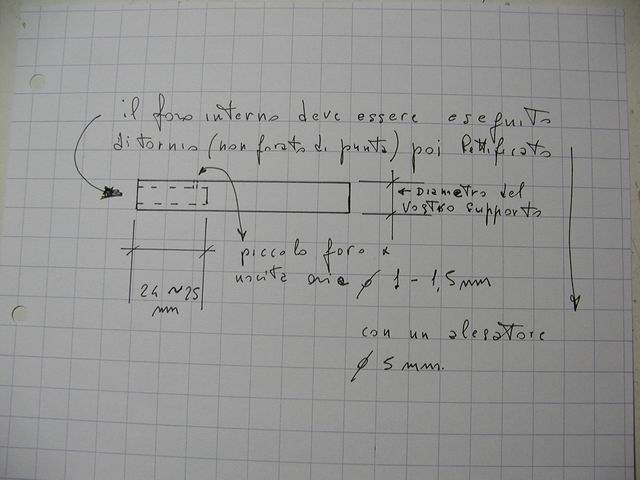 il foro interno deve essere eseguito
di tornio (non forato di punta) poi Rettificato
← Diametro del
Vostro supporto
piccolo foro x
uscita aria ϕ 1 - 1,5 mm
24 ~ 25
mm
con un alesatore
ϕ 5 mm.